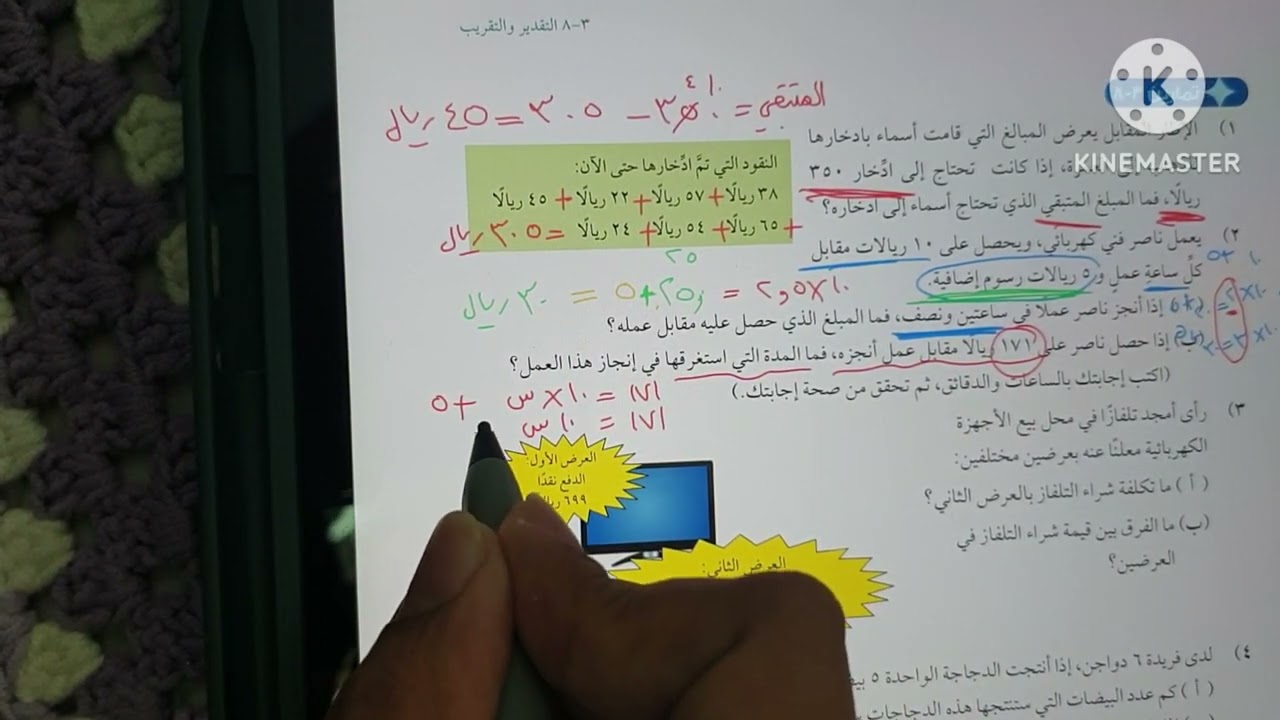 ٣-٨ التقدير والتقريب
المتبقي = ٣٥٠ ٤ ١٠ - ٣٠٥ = ٤٥ ريال
KINEMASTER
١) المقابل يعرض المبالغ التي قامت أسماء بادخارها
إذا كانت تحتاج إلى ادِّخار ٣٥٠
ريالًا، فما المبلغ المتبقي الذي تحتاج أسماء إلى ادخاره؟
النقود التي تمَّ ادِّخارها حتى الآن:
٣٨ ريالًا + ٥٧ ريالًا + ٢٢ ريالًا + ٤٥ ريالًا
+ ٦٥ ريالًا + ٥٤ ريالًا + ٢٤ ريالًا = ٣٠٥ ريال
٢) يعمل ناصر فني كهربائي، ويحصل على ١٠ ريالات مقابل
كلِّ ساعةِ عملٍ و٥ ريالات رسوم إضافية.
٢٥
١٠ × ٢,٥ = ٢٥, + ٥ = ٣٠ ريال
إذا أنجز ناصر عملًا في ساعتين ونصف، فما المبلغ الذي حصل عليه مقابل عمله؟
(ب) إذا حصل ناصر على ١٧١ ريالًا مقابل عمل أنجزه، فما المدة التي استغرقها في إنجاز هذا العمل؟
(اكتب إجابتك بالساعات والدقائق، ثم تحقق من صحة إجابتك.)
١٧١ = ١٠ × س + ٥
١٧١ = ١٠ س
٣) رأى أمجد تلفازًا في محل بيع الأجهزة
الكهربائية معلنًا عنه بعرضين مختلفين:
(أ) ما تكلفة شراء التلفاز بالعرض الثاني؟
(ب) ما الفرق بين قيمة شراء التلفاز في
العرضين؟
العرض الأول:
الدفع نقدًا
٦٩٩
العرض الثاني:
٤) لدى فريدة ٦ دواجن، إذا أنتجت الدجاجة الواحدة ٥
(أ) كم عدد البيضات التي ستنتجها هذه الدجاجات